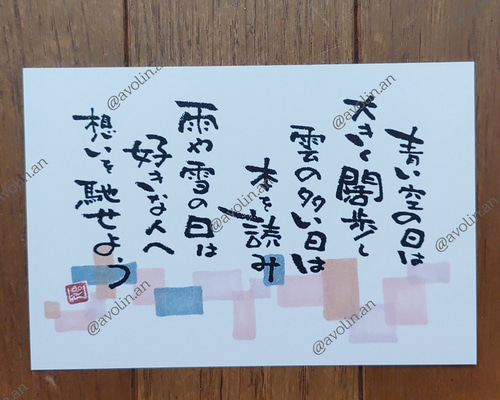 青い空の日は
大きく闊歩し
雲の多い日は
本を読み
雨や雪の日は
好きな人へ
想いを馳せよう
@avolin.an
@avolin.an
@avolin.an
@avolin.an
@avolin.an
@avolin.an
@avolin.an
@avolin.an